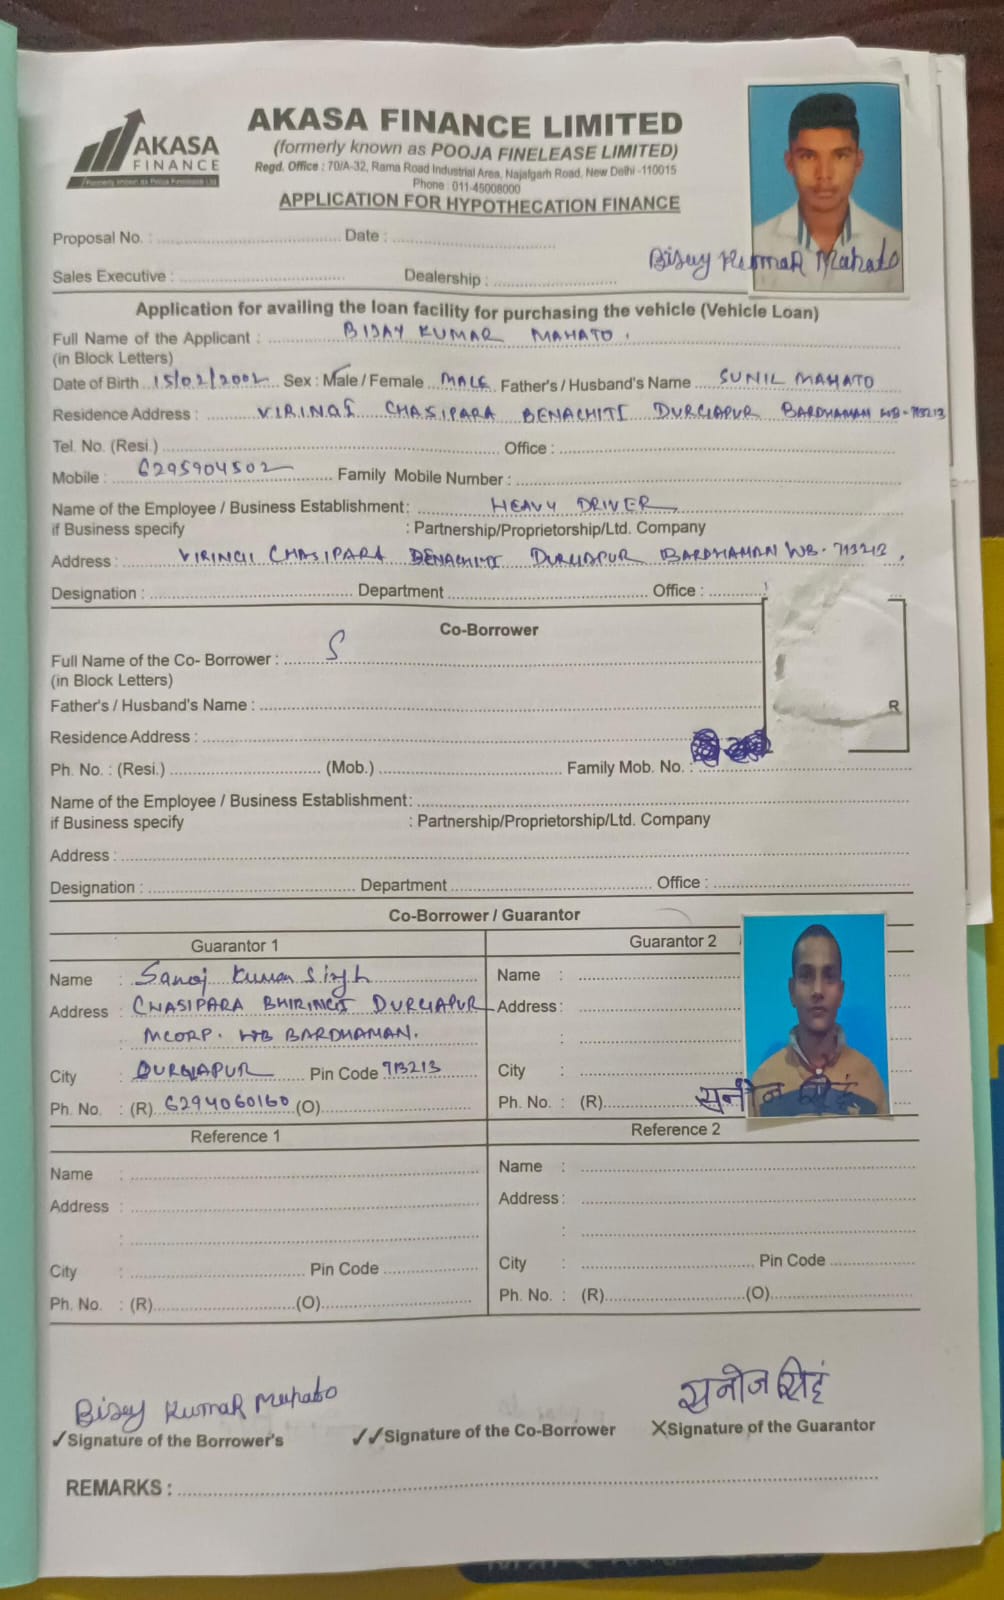 AKASA
FINANCE
Formerly known as Pooja Finelease Ltd.
AKASA FINANCE LIMITED
(formerly known as POOJA FINELEASE LIMITED)
Regd. Office : 70/A-32, Rama Road Industrial Area, Najafgarh Road, New Delhi -110015
Phone : 011-45008000
APPLICATION FOR HYPOTHECATION FINANCE
Proposal No. : Date :
Bijay Kumar Mahato
Sales Executive : Dealership :
Application for availing the loan facility for purchasing the vehicle (Vehicle Loan)
Full Name of the Applicant : BIJAY KUMAR MAHATO.
(in Block Letters)
Date of Birth 15/02/2002 Sex : Male / Female MALE Father's / Husband's Name SUNIL MAHATO
Residence Address : VIRINGI CHASIPARA BENACHITI DURGAPUR BARDHAMAN WB-713213
Tel. No. (Resi.) Office :
Mobile : 6295904502 Family Mobile Number :
Name of the Employee / Business Establishment: HEAVY DRIVER
if Business specify : Partnership/Proprietorship/Ltd. Company
Address : VIRINGI CHASIPARA BENACHITI DURGAPUR BARDHAMAN WB. 713213,
Designation : Department Office :
Co-Borrower
Full Name of the Co- Borrower : S
(in Block Letters)
Father's / Husband's Name : R
Residence Address :
Ph. No. : (Resi.) (Mob.) Family Mob. No. :
Name of the Employee / Business Establishment:
if Business specify : Partnership/Proprietorship/Ltd. Company
Address :
Designation : Department Office :
Co-Borrower / Guarantor
Guarantor 1 Guarantor 2
Name : Sanoj Kumar Singh Name :
Address : CHASIPARA BHIRINGI DURGAPUR Address:
: MCORP. WB BARDHAMAN. :
City : DURGAPUR Pin Code 713213 City :
Ph. No. : (R) 6294060160 (O) Ph. No. : (R) सनोज सिहं
Reference 1 Reference 2
Name : Name :
Address : Address:
: :
City : Pin Code City : Pin Code
Ph. No. : (R) (O) Ph. No. : (R) (O)
Bijay Kumar Mahato सनोज सिहं
✓Signature of the Borrower's ✓✓Signature of the Co-Borrower XSignature of the Guarantor
REMARKS :